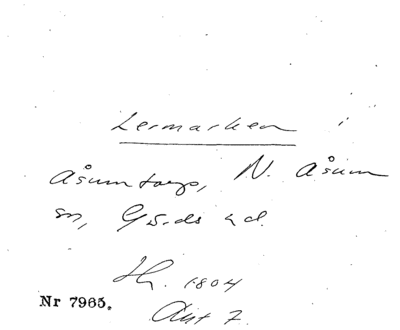 Lermarken i
Åsumtorp, N. Åsum
sn, Gärds hd.
Hr. 1804
Akt 7.
Nr 7965.